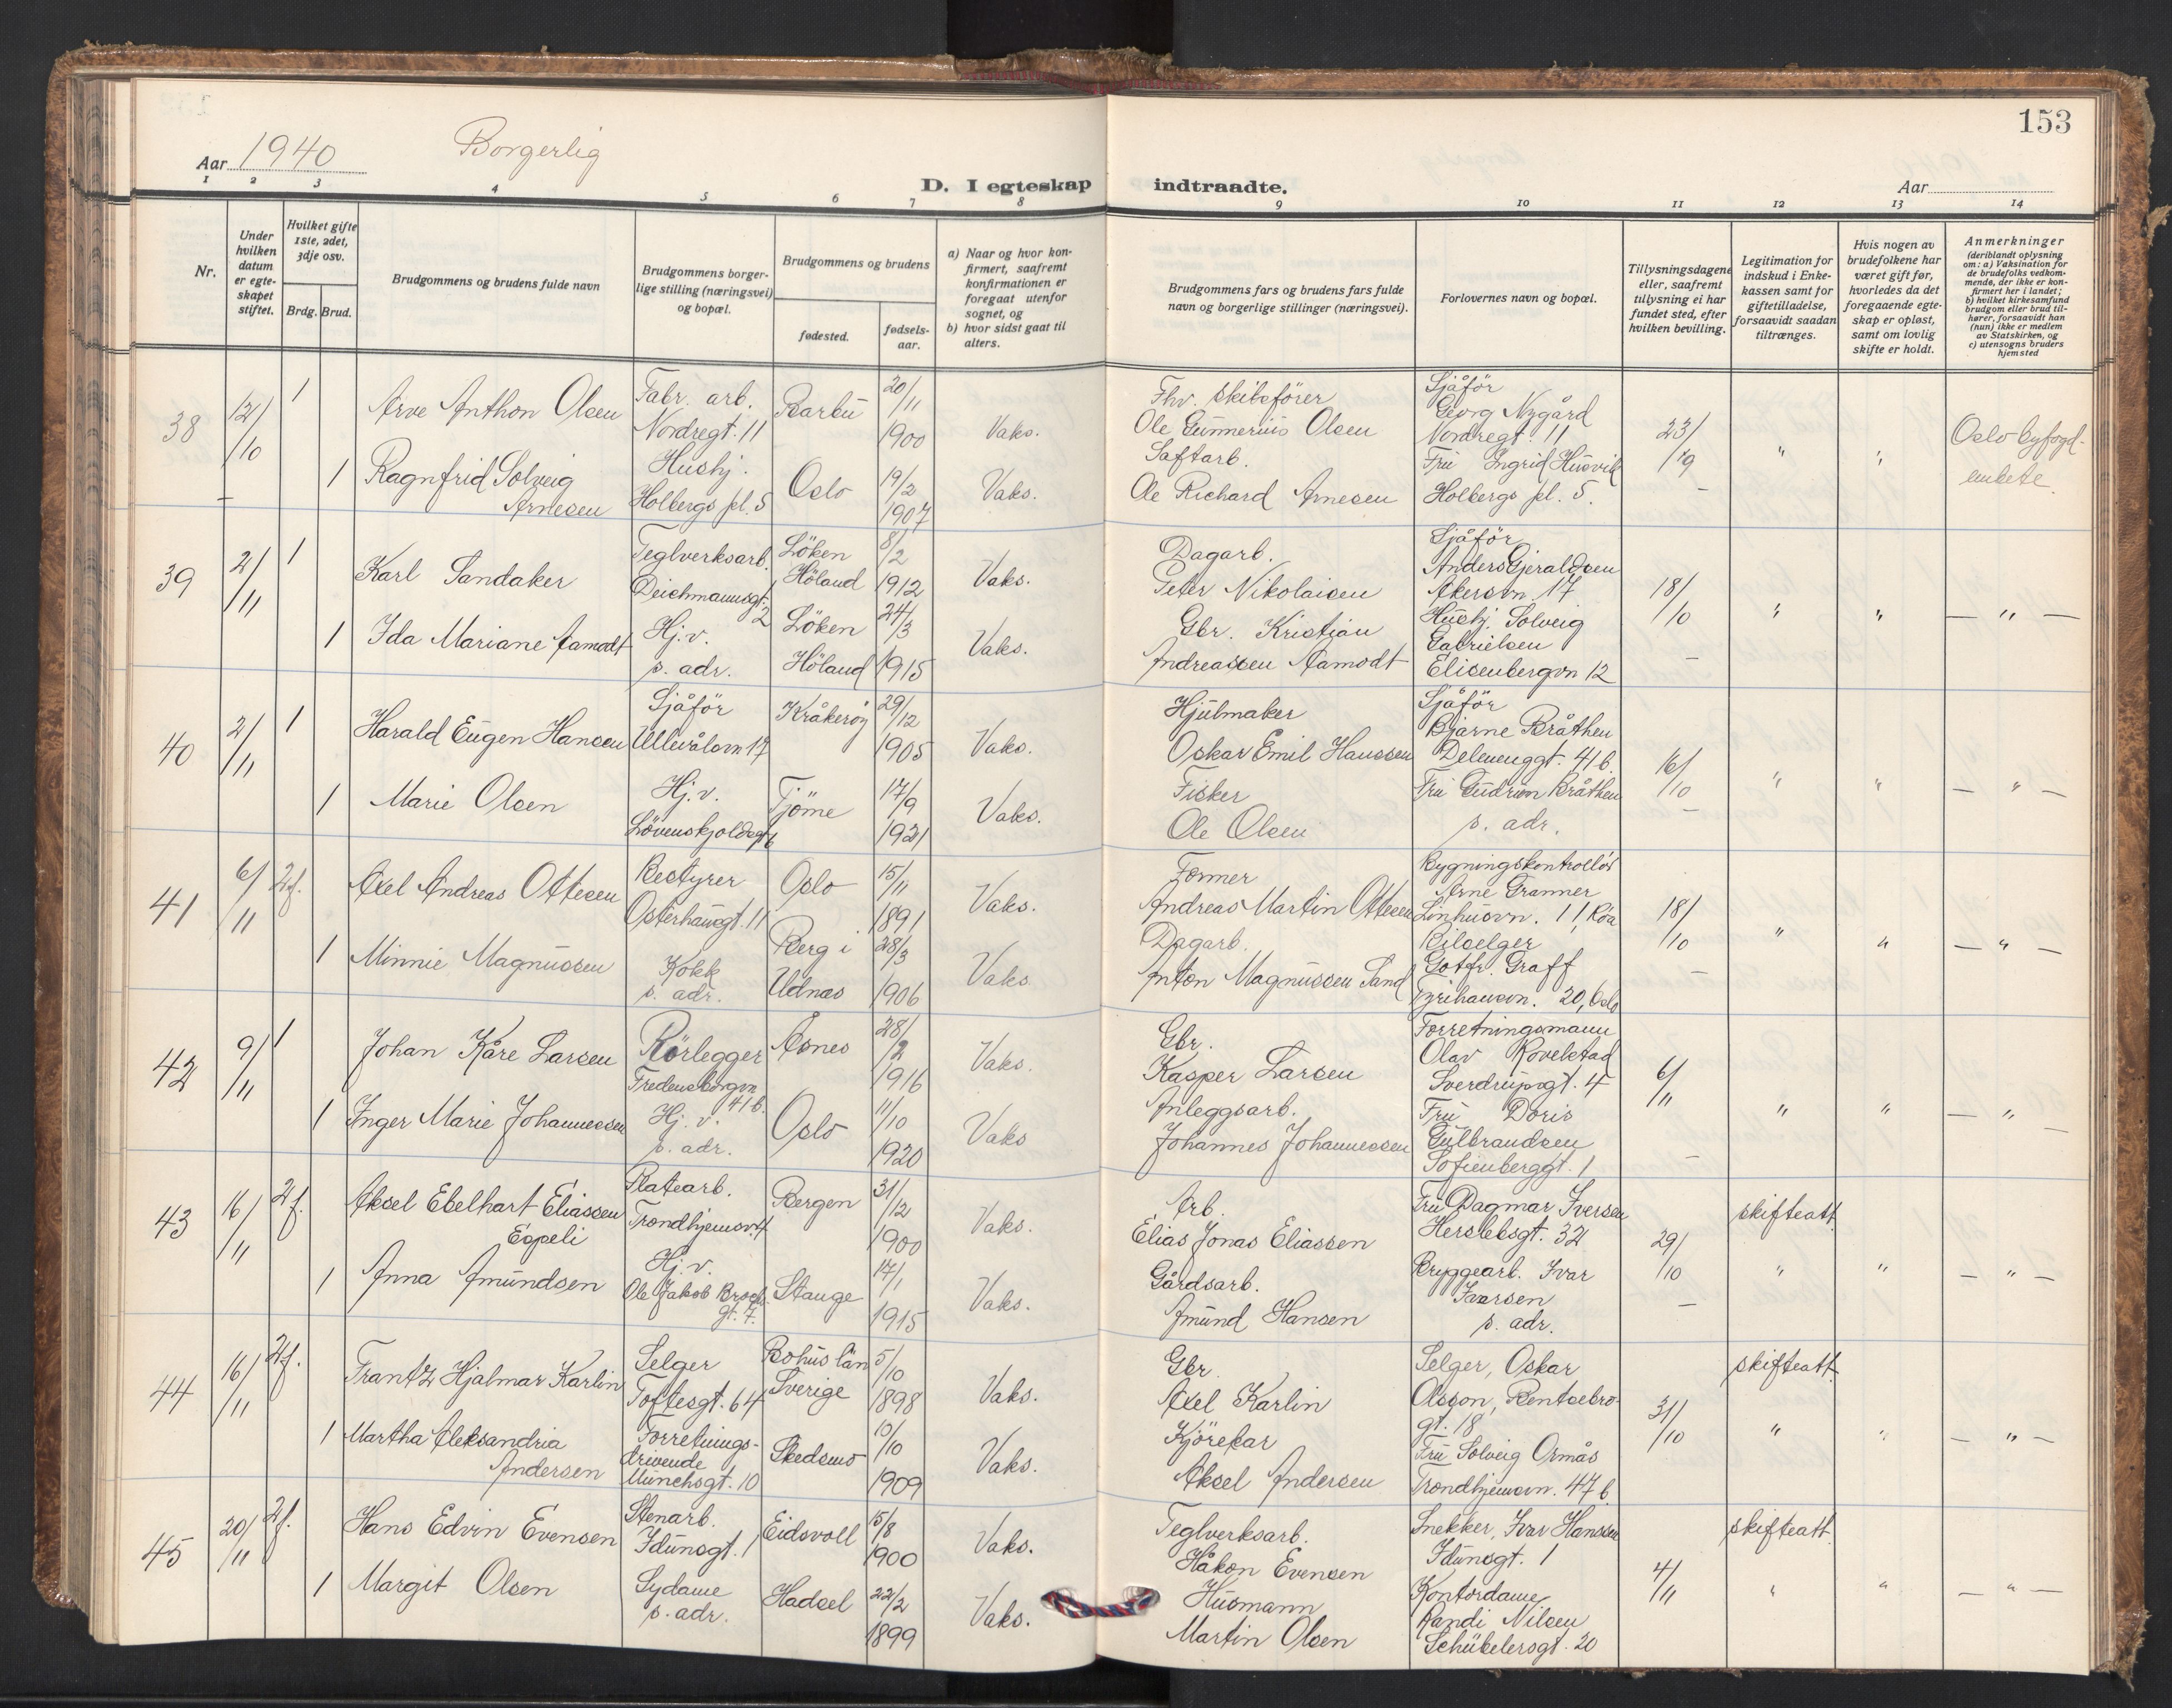 153
Aar 1940 Borgerlig
D. I egteskap indtraadte. Aar
1 2 3 4 5 6 7 8 9 10 11 12 13 14
Nr.
Under hvilken datum er egteskapet stiftet.
Hvilket gifte 1ste, 2det, 3dje osv.
Brdg. Brud.
Brudgommens og brudens fulde navn
Brudgommens borgerlige stilling (næringsvei) og bopæl.
Brudgommens og brudens
fødested. fødselsaar.
a) Naar og hvor konfirmert, saafremt konfirmationen er foregaat utenfor sognet, og
b) hvor sidst gaat til alters.
Brudgommens fars og brudens fars fulde navn og borgerlige stillinger (næringsvei).
Forlovernes navn og bopæl.
Tillysningsdagene eller, saafremt tillysning ei har fundet sted, efter hvilken bevilling.
Legitimation for indskud i Enkekassen samt for giftetilladelse, forsaavidt saadan tiltrænges.
Hvis nogen av brudefolkene har været gift før, hvorledes da det foregaaende egteskap er opløst, samt om lovlig skifte er holdt.
Anmerkninger (deriblandt oplysning om: a) Vaksination for de brudefolks vedkommende, der ikke er konfirmert her i landet; b) hvilket kirkesamfund brudgom eller brud tilhører, forsaavidt han (hun) ikke er medlem av Statskirken, og c) utensogns bruders hjemsted
38 12/10 1 Arve Anthon Olsen Fabr. arb. Nordregt. 11 Barbu 20/11 1900 Vaks. Fhv. skibsfører Ole Gunnerius Olsen Sjåfør Georg Nygård Nordregt. 11 23/9 " " Oslo byfogdembete
1 Ragnfrid Solveig Arnesen Hushj. Holbergs pl. 5 Oslo 19/2 1907 Vaks. Saftarb. Ole Richard Arnesen Fru Ingrid Husvik Holbergs pl. 5.
39 2/11 1 Karl Sandaker Teglverksarb. Deichmannsgt. 2 Löken Höland 8/2 1912 Vaks. Dagarb. Peter Nikolaisen Sjåför Anders Gjeraldsen Akersvn. 17 18/10 " " — " —
1 Ida Mariane Aamodt Hj.v. s. adr. Löken Höland 24/3 1915 Vaks. Gbr. Kristian Andreassen Aamodt Hushj. Solveig Gabrielsen Elisenbergvn 12
40 2/11 1 Harald Eugen Hansen Sjåför Ullevålsvn 17 Kråkeröy 29/12 1905 Vaks. Hjulmaker Oskar Emil Hanssen Sjåför Bjarne Bråthen Delenenggt. 41 b. 16/10 " " — " —
1 Marie Olsen Hj.v. Lövenskjoldsgt 6 Tjöme 17/9 1921 Vaks. Fisker Ole Olsen Fru Gudrun Bråthen s. adr.
41 6/11 2 f. Axel Andreas Ottesen Bestyrer Osterhausgt. 11 Oslo 15/11 1891 Vaks. Former Andreas Martin Ottesen Bygningskontrollör Arne Granner Linhusvn. 11, Röa 18/10 " " — " —
1 Minnie Magnussen Kokk s. adr. Berg i Udnæs 28/3 1906 Vaks Dagarb. Anton Magnussen Sand Bilselger Gotfr. Graff Tyrihansvn. 20, Oslo
42 9/11 1 Johan Kåre Larsen Rörlegger Fredensborgvn 41 b. Åsnes 28/2 1916 Vaks. Gbr. Kasper Larsen Forretningsmann Olav Rovelstad Sverdrupsgt. 4 6/11 " " — " —
1 Inger Marie Johannessen Hj. v. s. adr. Oslo 11/10 1920 Vaks Anleggsarb. Johannes Johannessen Fru Doris Gulbrandsen Sofienberggt. 1
43 16/11 2 f. Aksel Ebelhart Eliassen Espeli Platearb. Trondhjemsv. 4 Bergen 31/12 1900 Vaks. Arb. Elias Jonas Eliassen Fru Dagmar Iversen Herslebsgt. 32 29/10 skifteatt. " " — " —
1 Anna Amundsen Hj. v. Ole Jakob Brochs gt. 7. Stange 17/1 1915 Vaks. Gårdsarb. Amund Hansen Bryggearb. Ivar Iversen s. adr.
44 16/11 2 f. Frantz Hjalmar Karlin Selger Toftesgt. 64 Bohus län Sverige 5/10 1898 Vaks. Gbr. Axel Karlin Selger, Oskar Olsson, Bentsebrogt. 18 31/10 skifteatt. " " — " —
1 Martha Aleksandria Andersen Forretningsdrivende Munchsgt. 10 Skedsmo 10/10 1909 Vaks. Kjörekar Aksel Andersen Fru Solveig Ormås Trondhjemsvn. 47 b.
45 20/11 2 f. Hans Edvin Evensen Stenarb. Idunsgt. 1 Eidsvoll 15/8 1900 Vaks. Teglverksarb. Håkon Evensen Snekker, Ivar Hanssen Idunsgt. 1 4/11 skifteatt. " " — " —
1 Margit Olsen Sydame s. adr. Hadsel 22/2 1899 Vaks. Husmann Martin Olsen Kontordame Randi Nilsen Schübelersgt. 20